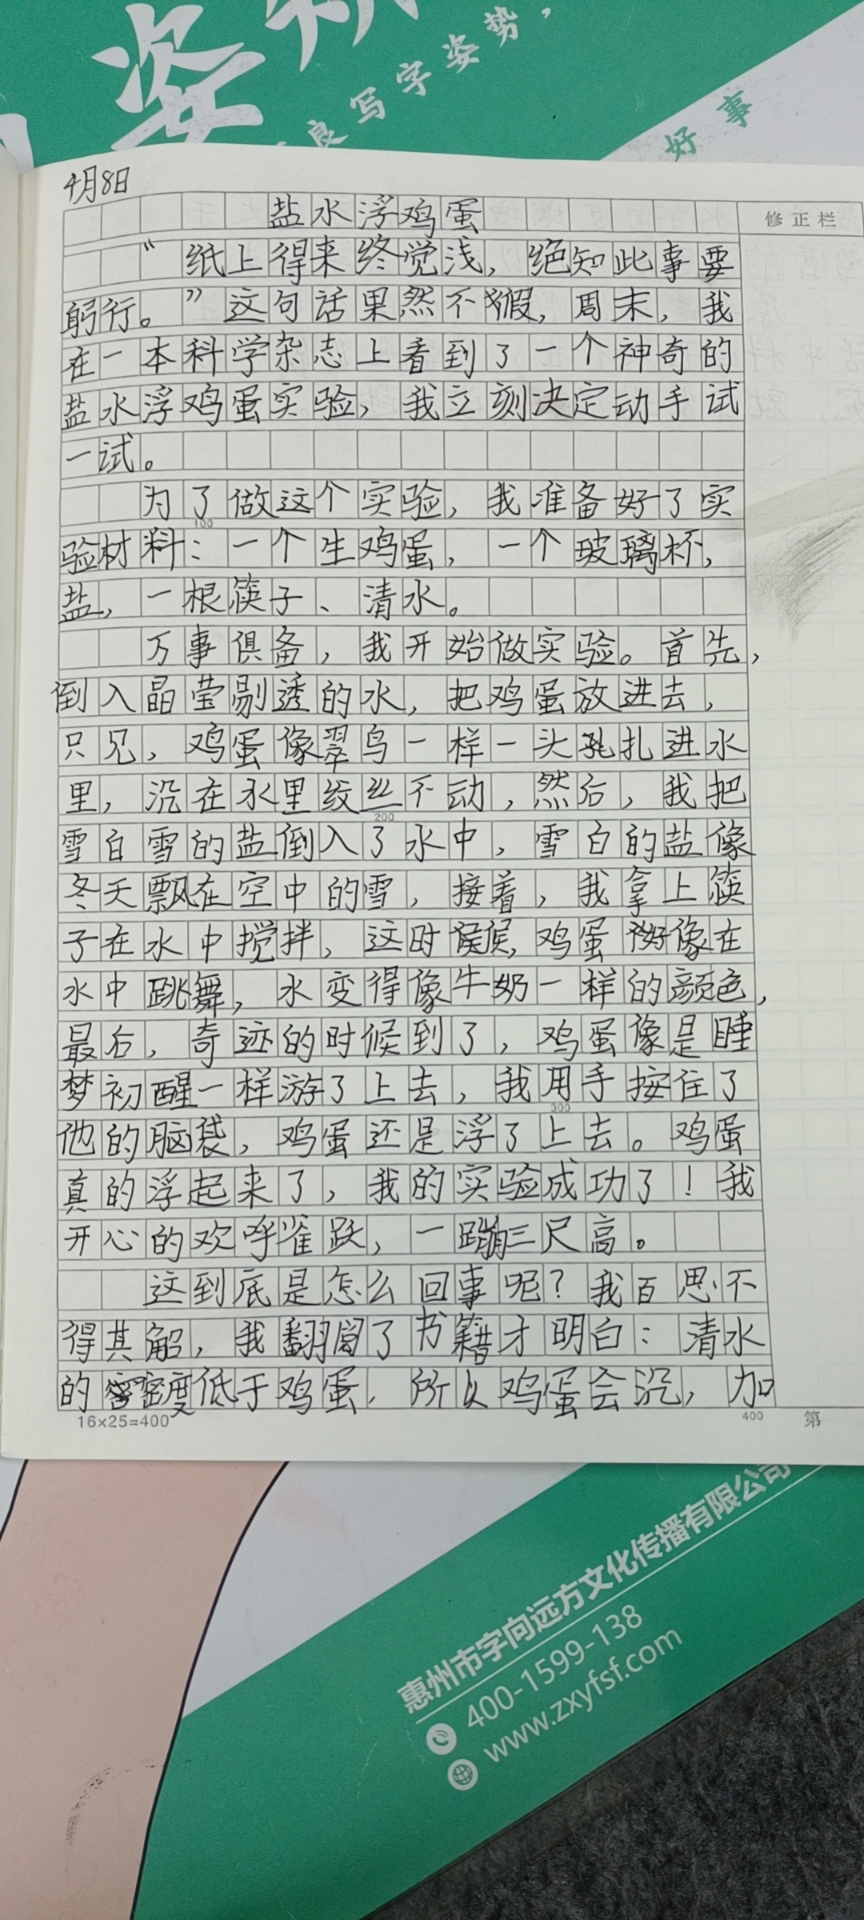 姿
良写字姿势，
好事
4月8日
盐水浮鸡蛋
修正栏
“纸上得来终觉浅，绝知此事要
躬行。”这句话果然不假，周末，我
在一本科学杂志上看到了一个神奇的
盐水浮鸡蛋实验，我立刻决定动手试
一试。
为了做这个实验，我准备好了实
100
验材料：一个生鸡蛋，一个玻璃杯，
盐，一根筷子、清水。
万事俱备，我开始做实验。首先，
倒入晶莹剔透的水，把鸡蛋放进去，
只见，鸡蛋像翠鸟一样一头扎进水
里，沉在水里纹丝不动，然后，我把
200
雪白雪的盐倒入了水中，雪白的盐像
冬天飘在空中的雪，接着，我拿上筷
子在水中搅拌，这时候，鸡蛋好像在
水中跳舞，水变得像牛奶一样的颜色，
最后，奇迹的时候到了，鸡蛋像是睡
梦初醒一样游了上去，我用手按住了
300
他的脑袋，鸡蛋还是浮了上去。鸡蛋
真的浮起来了，我的实验成功了！我
开心的欢呼雀跃，一蹦三尺高。
这到底是怎么回事呢？我百思不
得其解，我翻阅了书籍才明白：清水
的密度低于鸡蛋，所以鸡蛋会沉，加
16×25=400
400
第
惠州市字向远方文化传播有限公司
400-1599-138
www.zxyfsf.com